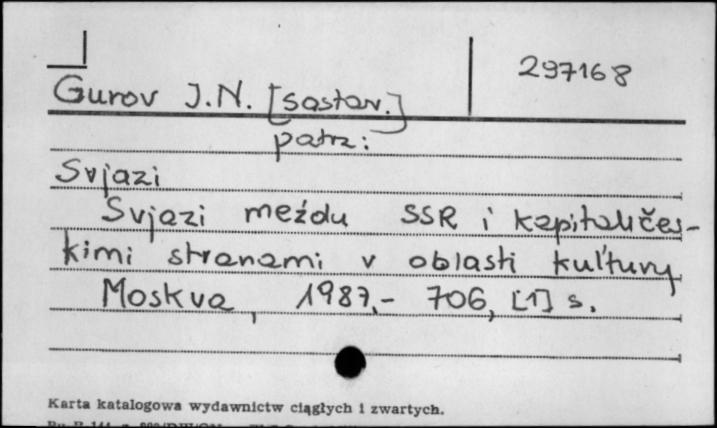 297168
Gurov J.N. [sostav.]
patrz:
Svjazi
Svjazi meżdu SSR i kapitaličes-
kimi stranami v oblasti kul'tury
Moskva, 1987,- 706, [1] s.
Karta katalogowa wydawnictw ciągłych i zwartych.